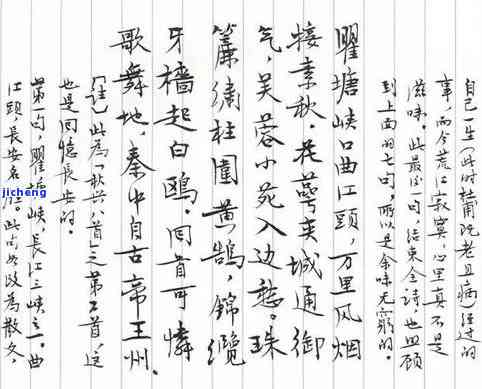 自己一生(此时杜甫既老且病)经过的
事,而今荒江寂寞,心里真不是
滋味。此最后一句,结束全诗,也回顾
到上面的七句,所以是余味无穷的。
瞿塘峡口曲江頭,万里风烟
接素秋。花萼夹城通御
气,芙蓉小苑入边愁。珠
簾绣柱圍黄鵠,錦纜
牙檣起白鷗。回首可憐
歌舞地,秦中自古帝王州。
〔註〕此為「秋兴八首」之第六首,这
也是回憶長安的。
第一句,瞿塘峡,長江三峡之一。曲
江頭,長安名胜。此句如改為散文,
jicheng